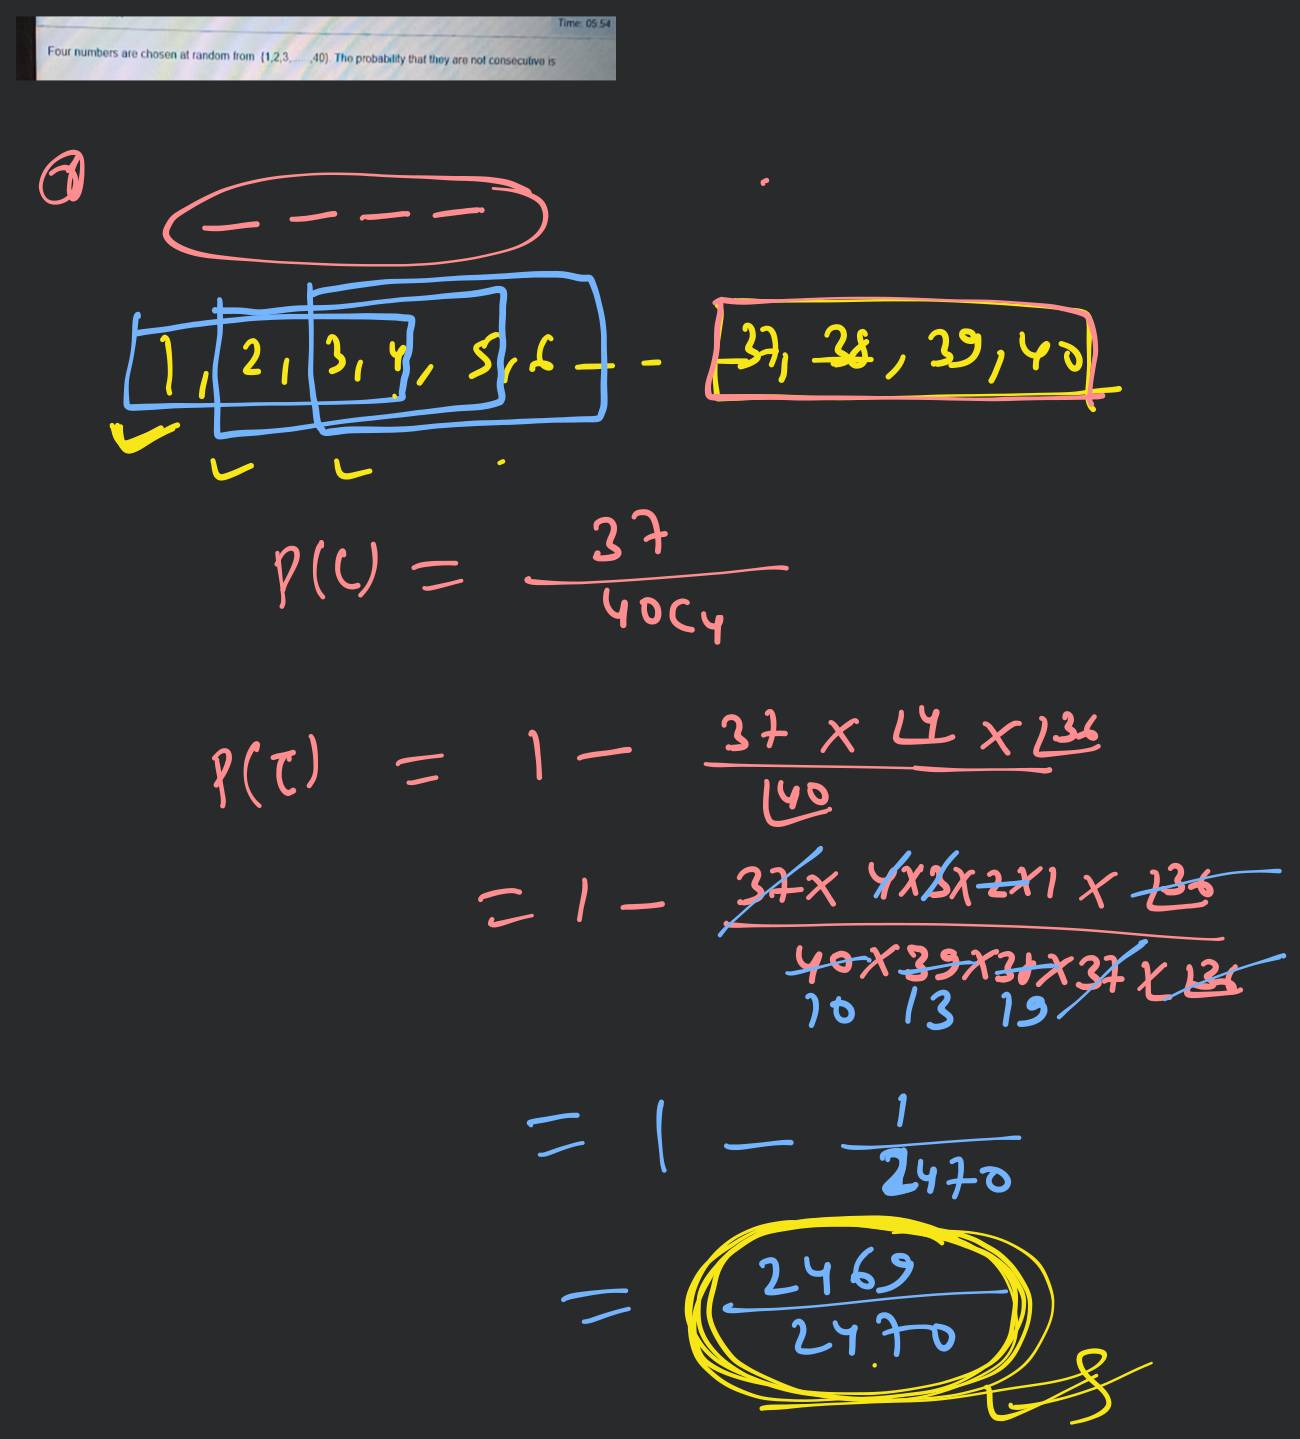 Time: 05:54
Four numbers are chosen at random from {1,2,3,.... ,40}. The probability that they are not consecutive is
1, 2, 3, 4, 5, 6 - - 37, 38, 39, 40
P(C) = 37 / 40C4
P(C̅) = 1 - 37 × |4 × |36 / |40
= 1 - 37 × 4×3×2×1 × |36 / 40×39×38×37×|36
10 13 19
= 1 - 1 / 2470
= 2469 / 2470